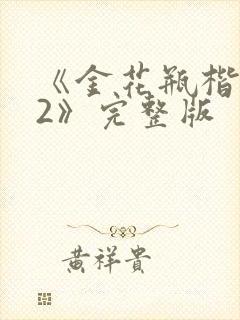 《金花瓶楷
2》完整版
黄祥貴